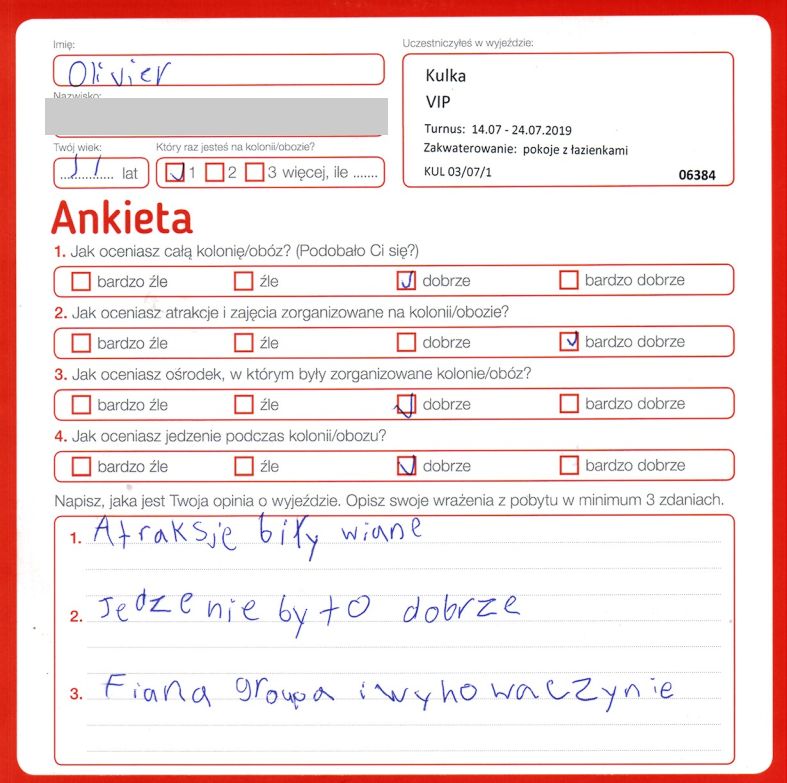 Imię:
Uczestniczyłeś w wyjeździe:
Olivier
Kulka
VIP
Nazwisko:
Turnus: 14.07 - 24.07.2019
Zakwaterowanie: pokoje z łazienkami
KUL 03/07/1
06384
Twój wiek:
Który raz jesteś na kolonii/obozie?
11 lat
1 2 3 więcej, ile .......
Ankieta
1. Jak oceniasz całą kolonię/obóz? (Podobało Ci się?)
bardzo źle źle dobrze bardzo dobrze
2. Jak oceniasz atrakcje i zajęcia zorganizowane na kolonii/obozie?
bardzo źle źle dobrze bardzo dobrze
3. Jak oceniasz ośrodek, w którym były zorganizowane kolonie/obóz?
bardzo źle źle dobrze bardzo dobrze
4. Jak oceniasz jedzenie podczas kolonii/obozu?
bardzo źle źle dobrze bardzo dobrze
Napisz, jaka jest Twoja opinia o wyjeździe. Opisz swoje wrażenia z pobytu w minimum 3 zdaniach.
1. Atraksje biły wiane
2. Jedzenie byto dobrze
3. Fiana groupa i wyhowaczynie